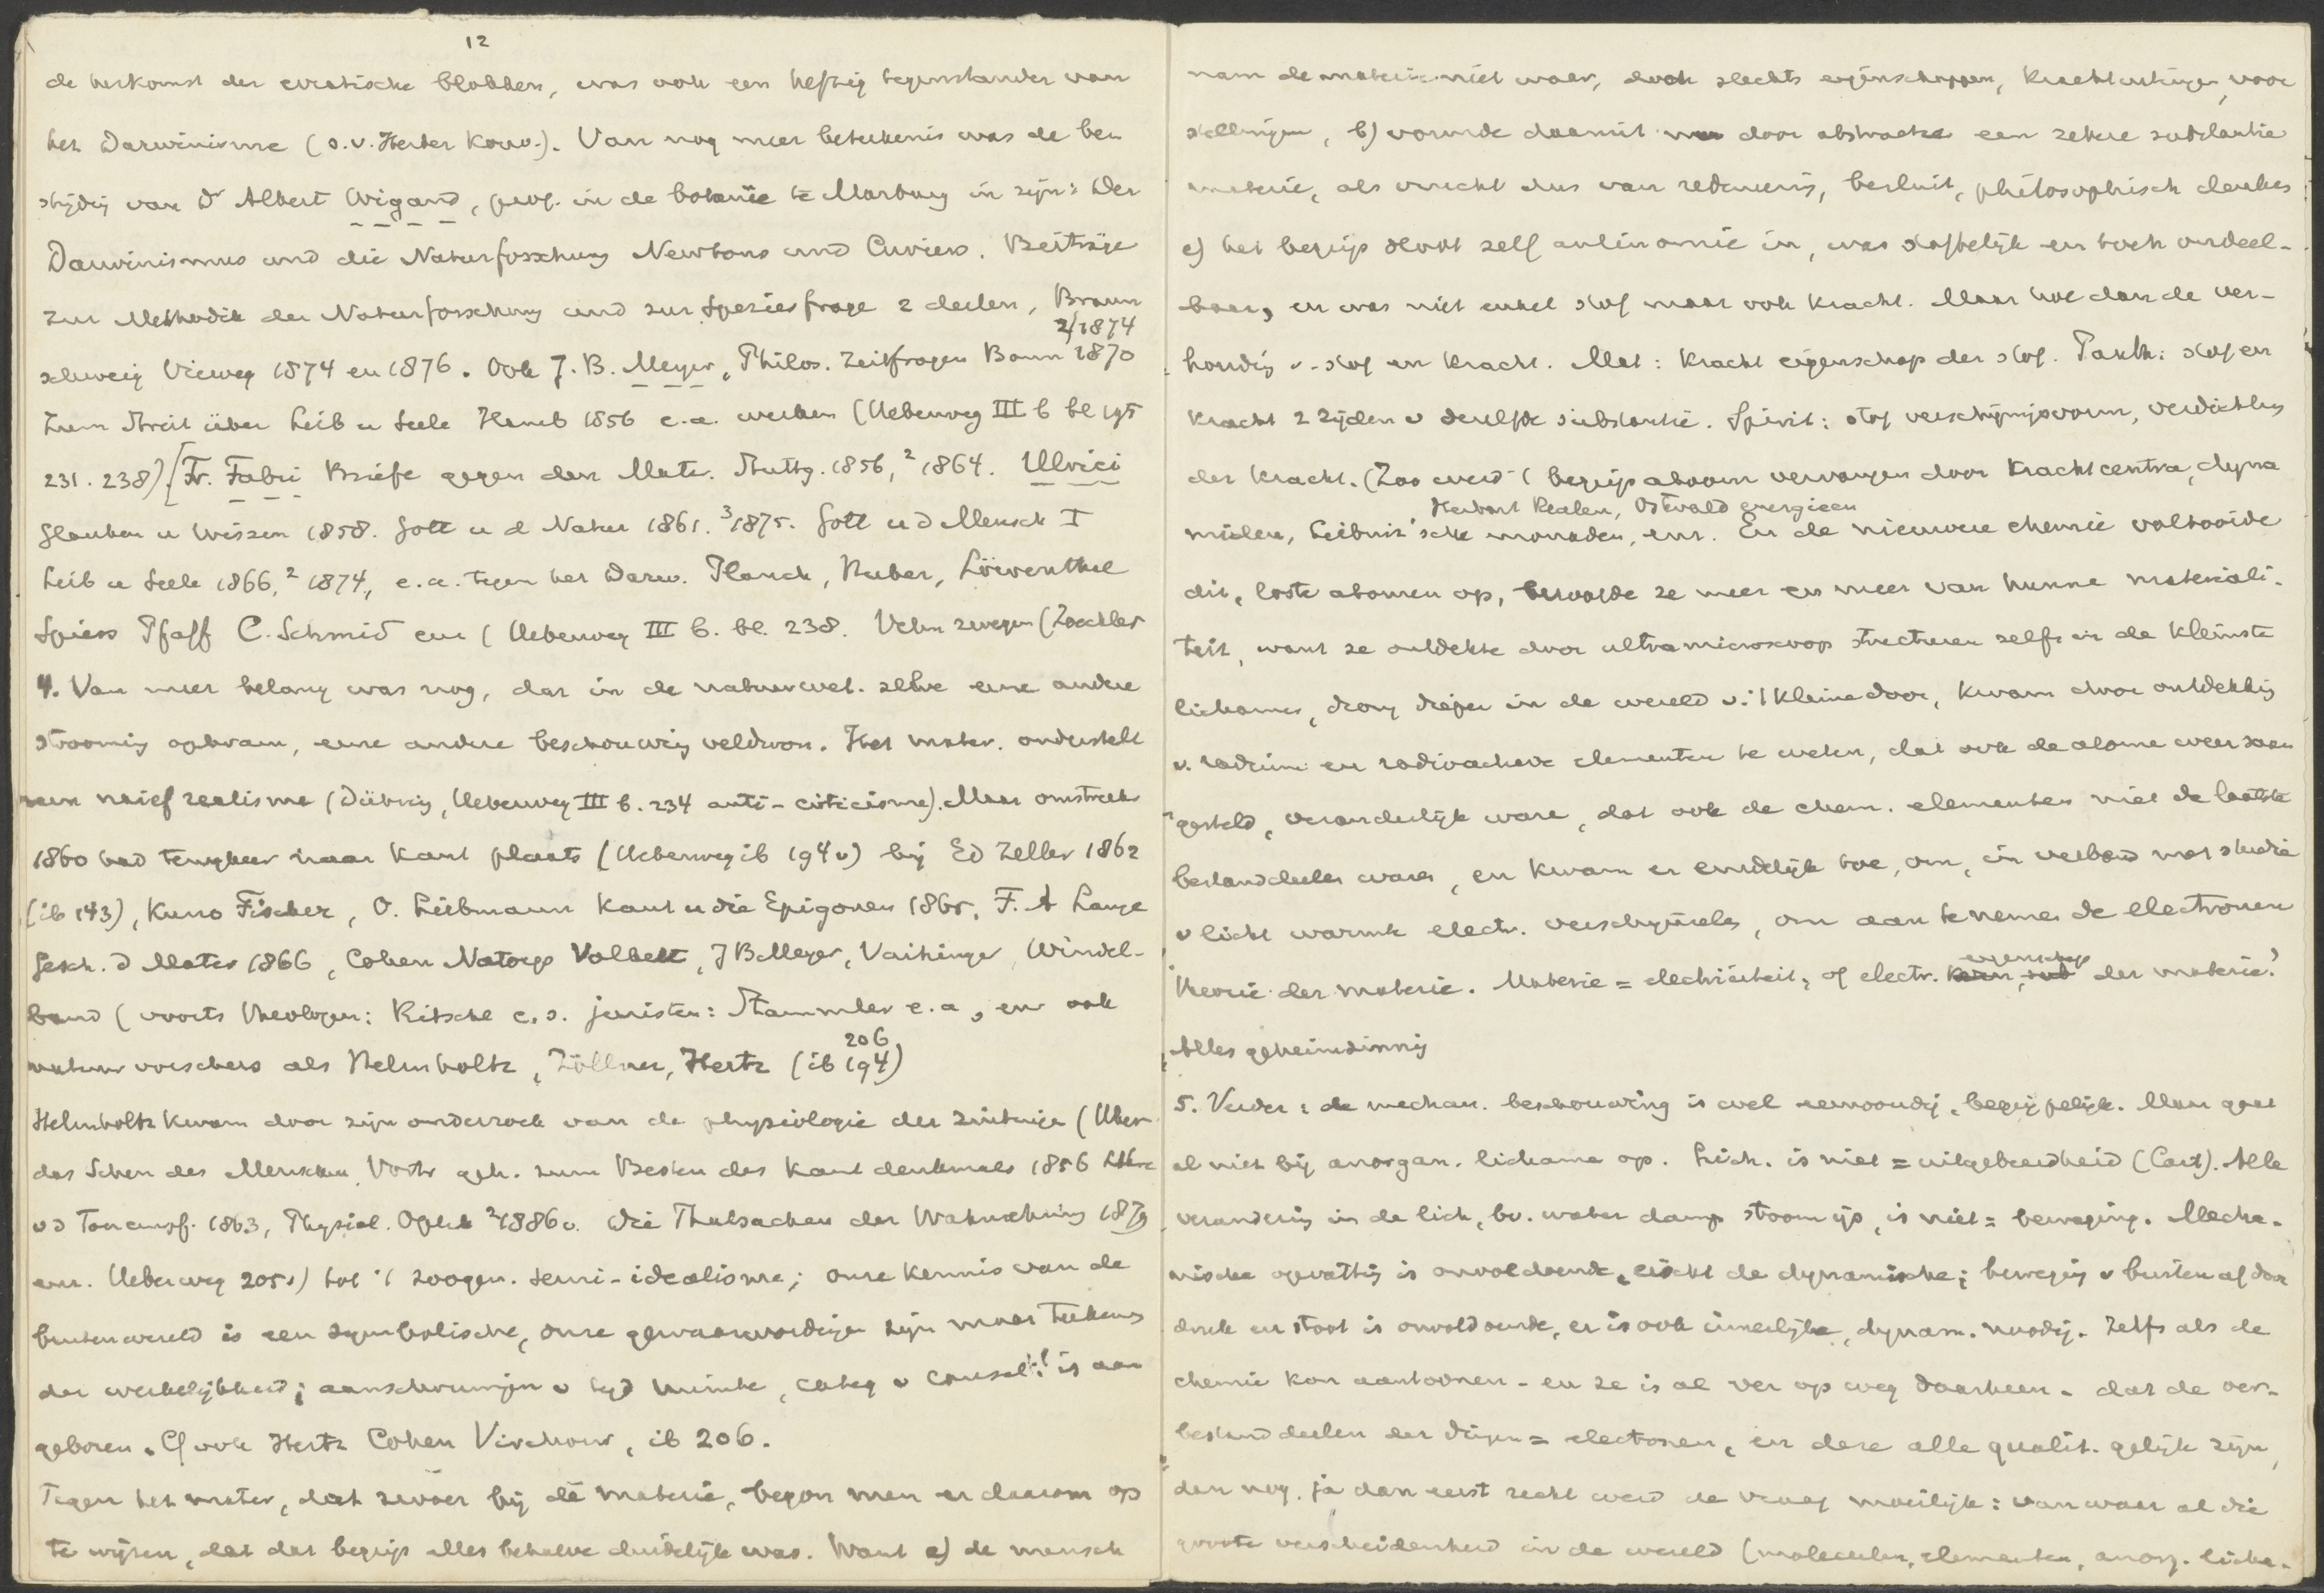 12
de herkomst der erratische blokken, was ook een heftig tegenstander van
het Darwinisme (o.v. Herder Konv.). Van nog meer beteekenis was de be
strijdig van Dr Albert Wigand, prof. in de botanie te Marburg in zijn: Der
Darwinismus und die Naturforschung Newtons und Cuviers. Beiträge
zur Methodik der Naturforschung und zur Speziesfrage 2 deelen, Braun
schweig Vieweg 1874 en 1876. Ook J. B. Meyer, Philos. Zeitfragen Bonn 1870
2/1874
Zum Streit über Leib u Seele Hamb 1856 e.a. werken (Ueberweg III b bl 195
231. 238). [Fr. Fabri Briefe gegen den Mater. Stuttg. 1856, ² 1864. Ulrici
Glauben u Wissen 1858. Gott u d Natur 1861. ³1875. Gott u d Mensch I
Leib u Seele 1866, ² 1874, e.a. tegen het Darw. Planck, Huber, Löwenthal
Spiess Pfaff C. Schmid enz (Ueberweg III b. bl. 238. Velen zwegen (Zöckler
4. Van meer belang was nog, dat in de natuurwet. zelve eene andere
strooming opkwam, eene andere beschouwing veldwon. Het mater. onderstelt
een naief realisme (Dühring, Ueberweg III b. 234 anti-criticisme). Maar omstreeks
1860 had terugkeer naar Kant plaats (Ueberweg ib 194 v) bij Ed Zeller 1862
(ib 143), Kuno Fischer, O. Liebmann Kant u die Epigonen 1865, F. A Lange
Gesch. d Mater 1866, Cohen Natorp Volkelt, J B Meyer, Vaihinger, Windel-
band (voorts theologen: Ritschl c.s. juristen: Stammler e.a., en ook
natuurvorschers als Helmholtz, Zöllner, Hertz (ib 194)
206
Helmholtz kwam door zijn onderzoek van de physiologie der zintuigen (Ueber
das Sehen des Menschen, Vortr geh. zum Besten des Kant denkmals 1856 Lehre
v d Tonempf. 1863, Physiol. Optik ²1886 v. Die Thatsachen der Wahrnehmung 1879
enz. Ueberweg 205 v) tot 't zoogen. semi-idealisme; onze kennis van de
buitenwereld is een symbolische, onze gewaarwordingen zijn maar teekens
der werkelijkheid; aanschouwingen v tijd ruimte, categ v causal: is aan
geboren. Cf ook Hertz Cohen Virchow, ib 206.
Tegen het mater, dat zwoer bij de materie, begon men er daarom op
te wijzen, dat dat begrip alles behalve duidelijk was. Want a) de mensch
nam de materie niet waar, doch slechts eigenschappen, krachtuitingen, voor
stellingen, b) vormde daaruit door abstractie een zekere substantie
materie, als vrucht dus van redeneering, besluit, philosophisch denken
c) het begrip sloot zelf antinomie in, was stoffelijk en toch ondeel-
baar, en was niet enkel stof maar ook kracht. Maar hoe dan de ver-
houding v. stof en kracht. Mat: kracht eigenschap der stof. Panth: stof en
kracht 2 zijden v dezelfde substantie. Spirit: stof verschijningsvorm, verdichting
der kracht. (Zoo werd 't begrip atoom vervangen door krachtcentra, dyna
Herbart Realen, Ostwald energieen
miden, Leibniz'sche monaden, enz. En de nieuwere chemie voltooide
dit, loste atomen op, beroofde ze meer en meer van hunne materiali-
teit, want ze ontdekte door ultramicroscoop structuren zelfs in de kleinste
lichamen, drong dieper in de wereld v. 't kleine door, kwam door ontdekking
v. radium en radioactieve elementen te weten, dat ook de atome weer saam
gesteld, veranderlijk ware, dat ook de chem. elementen niet de laatste
bestanddeelen waren, en kwam er eindelijk toe, om, in verband met studie
v licht warmte electr. verschijnselen, om aan te nemen de electronen
theorie der materie. Materie = electriciteit, of electr. eigenschap der materie?
Alles geheimzinnig
5. Verder: de mechan. beschouwing is wel eenvoudig, begrijpelijk. Maar gaat
al niet bij anorgan. lichamen op. Lich. is niet = uitgebreidheid (Cart). Alle
verandering in de lich, bv. water damp stoom ijs, is niet = beweging. Mecha-
nische opvatting is onvoldoende, eischt de dynamische; beweging v buiten af door
druk en stoot is onvoldoende, er is ook innerlijke, dynam. noodig. Zelfs als de
chemie kon aantoonen - en ze is al ver op weg daarheen - dat de oer-
bestanddeelen der dingen = electronen, en deze alle qualit. gelijk zijn,
dan nog, ja dan eerst recht werd de vraag moeilijk: van waar al die
groote verscheidenheid in de wereld (moleculen, elementen, anorg. licha-